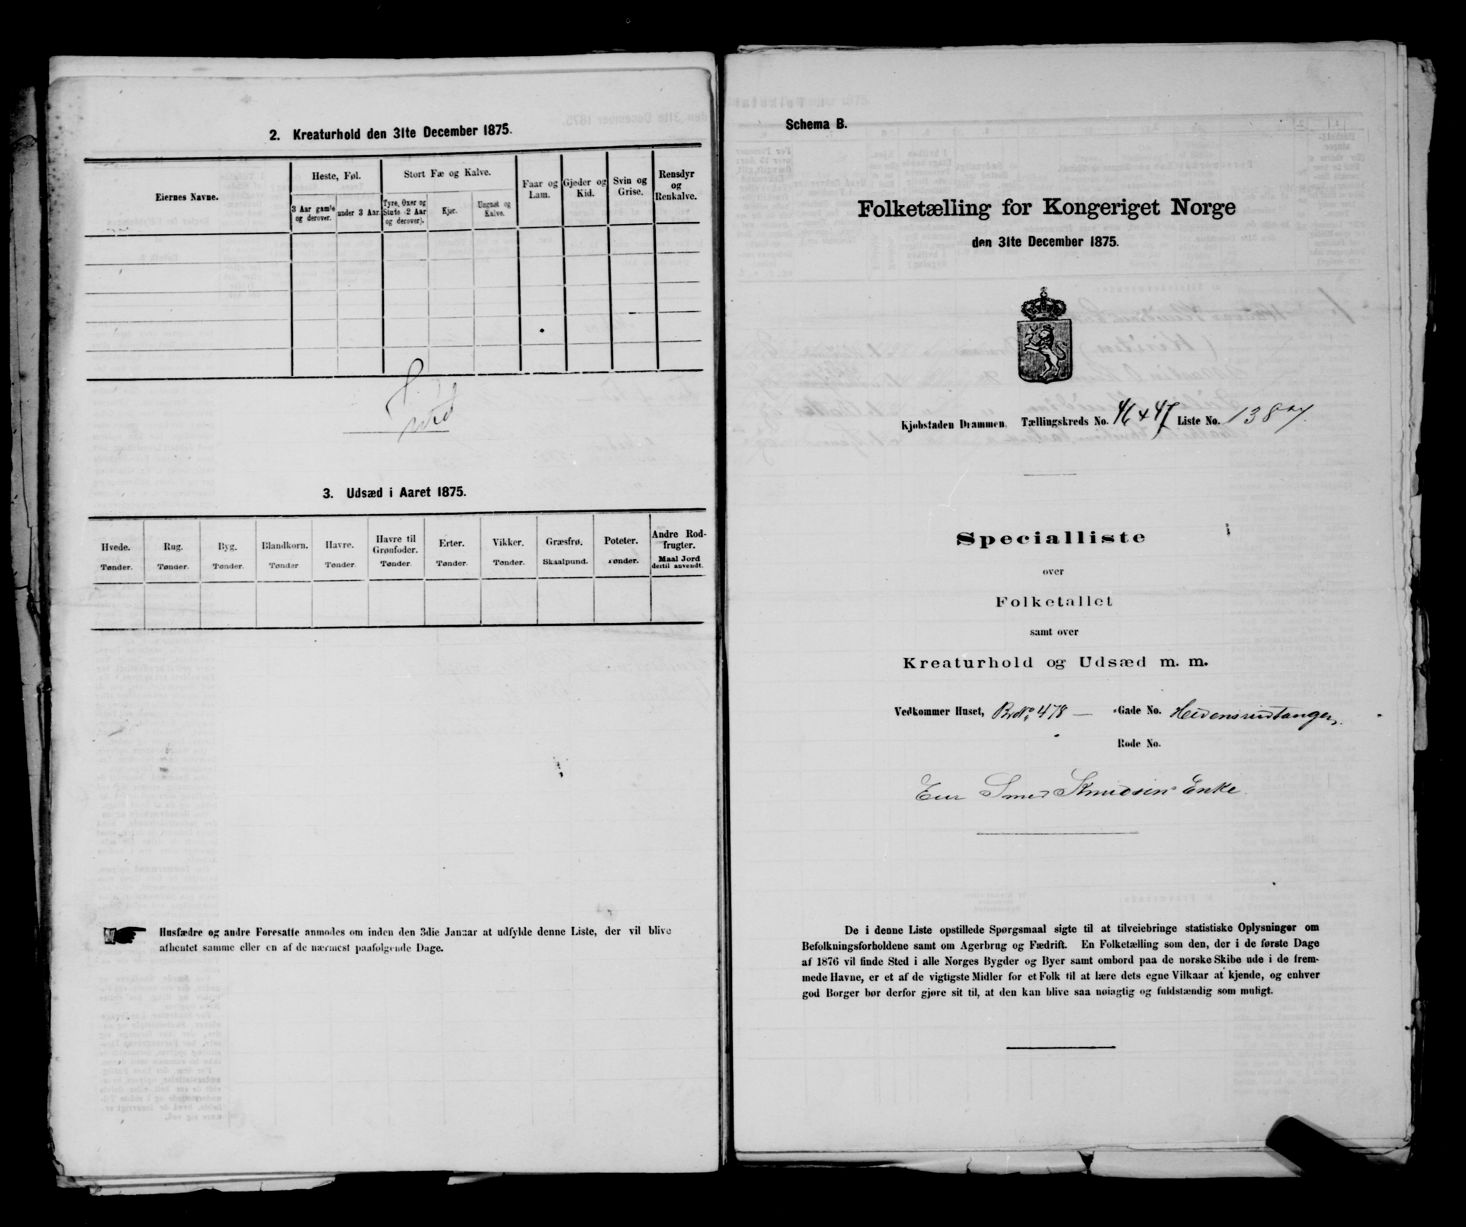 2. Kreaturhold den 31te December 1875.
Eiernes Navne.
Heste, Føl.
Stort Fæ og Kalve.
Faar og Lam.
Gjeder og Kid.
Svin og Grise.
Rensdyr og Renkalve.
3 Aar gamle og derover.
under 3 Aar.
Tyre, Oxer og Stude (2 Aar og derover).
Kjør.
Ungnøt og Kalve.
3. Udsæd i Aaret 1875.
Hvede.
Rug.
Byg.
Blandkorn.
Havre.
Havre til Grønfoder.
Erter.
Vikker.
Græsfrø.
Poteter.
Andre Rodfrugter.
Tønder.
Tønder.
Tønder.
Tønder
Tønder.
Tønder.
Tønder.
Tønder.
Skaalpund.
Tønder.
Maal Jord dertil anvendt.
Husfædre og andre Foresatte anmodes om inden den 3die Januar at udfylde denne Liste, der vil blive
afhentet samme eller en af de nærmest paafølgende Dage.
Schema B.
Folketælling for Kongeriget Norge
den 31te December 1875.
Kjøbstaden Drammen. Tællingskreds No. 46 x 47 Liste No. 1387.
Specialliste
over
Folketallet
samt over
Kreaturhold og Udsæd m. m.
Vedkommer Huset, BrNo 478 — Gade No. Hedensrudtangen,
Rode No.
Eier Smed Knudsens Enke.
De i denne Liste opstillede Spørgsmaal sigte til at tilveiebringe statistiske Oplysninger om
Befolkningsforholdene samt om Agerbrug og Fædrift. En Folketælling som den, der i de første Dage
af 1876 vil finde Sted i alle Norges Bygder og Byer samt ombord paa de norske Skibe ude i de frem-
mede Havne, er et af de vigtigste Midler for et Folk til at lære dets egne Vilkaar at kjende, og enhver
god Borger bør derfor gjøre sit til, at den kan blive saa nøiagtig og fuldstændig som muligt.